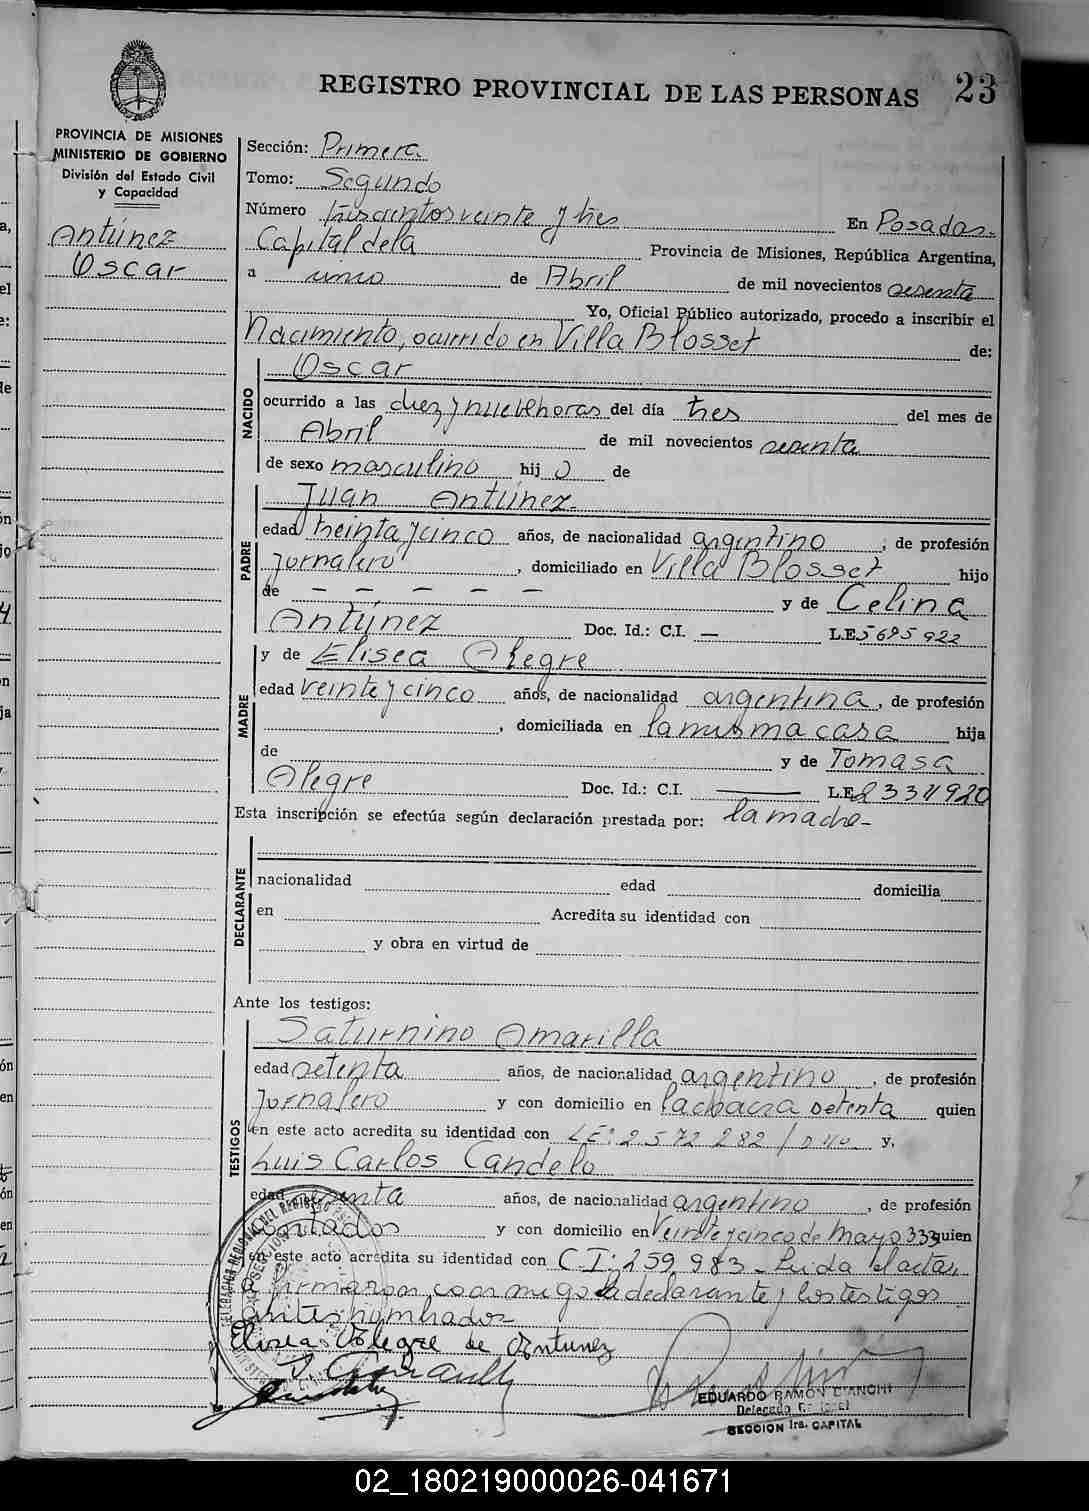 REGISTRO PROVINCIAL DE LAS PERSONAS 23
PROVINCIA DE MISIONES
MINISTERIO DE GOBIERNO
División del Estado Civil
y Capacidad
Antúnez
Oscar
Sección: Primera
Tomo: Segundo
Número trescientos veinte y tres En Posadas
Capital de la Provincia de Misiones, República Argentina,
a de Abril de mil novecientos sesenta
Yo, Oficial Público autorizado, procedo a inscribir el
Nacimiento, ocurrido en Villa Blosset de:
NACIDO
Oscar
ocurrido a las diez y nueve horas del día tres del mes de
Abril de mil novecientos sesenta
de sexo masculino hij o de
PADRE
Juan Antúnez
edad treinta y cinco años, de nacionalidad argentino, de profesión
Jornalero, domiciliado en Villa Blosset hijo
de – – – – – y de Celina
Antúnez Doc. Id.: C.I. — L.E. 5695922
MADRE
y de Elisea Alegre
edad veinte y cinco años, de nacionalidad argentina, de profesión
, domiciliada en la misma casa hija
de y de Tomasa
Alegre Doc. Id.: C.I. — L.E. 2331920
Esta inscripción se efectúa según declaración prestada por: la madre-
DECLARANTE
nacionalidad edad domicilia
en Acredita su identidad con
y obra en virtud de
Ante los testigos:
TESTIGOS
Saturnino Amarilla
edad setenta años, de nacionalidad argentino, de profesión
Jornalero y con domicilio en la chacra setenta quien
en este acto acredita su identidad con LE: 2572282 y,
Luis Carlos Candelo
edad años, de nacionalidad argentino, de profesión
y con domicilio en Veinte y cinco de Mayo 339 quien
en este acto acredita su identidad con C.I: 259.983- Leida el acta
firmaron conmigo la declarante y los testigos
antes nombrados-
Elisea Alegre de Antunez
EDUARDO RAMON BIANCHI
Delegado
SECCION 1ra. CAPITAL
02_180219000026-041671